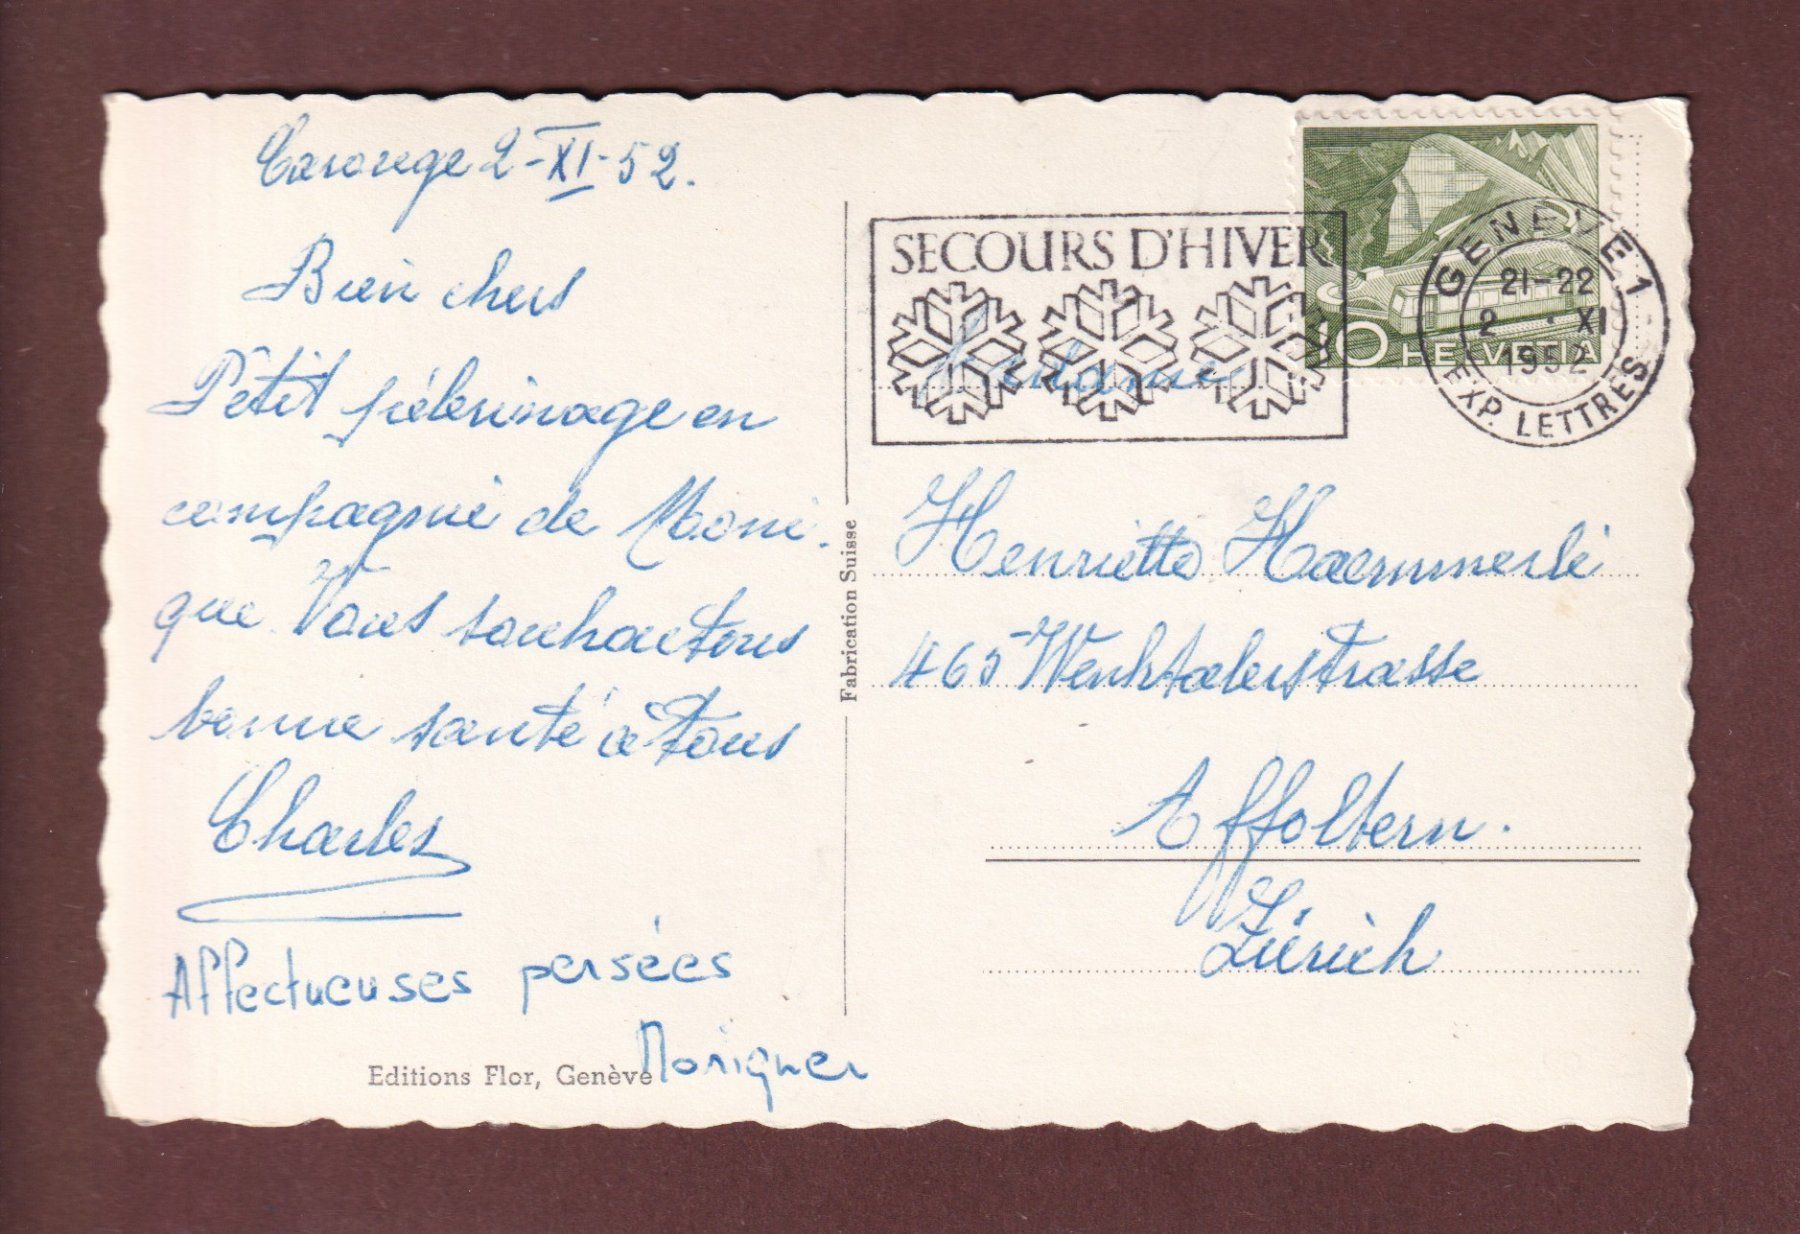 Carouge 2-XI-52.
Bien chers
Petit pélerinage en
compagnie de Moni-
que. Vous souhaitons
bonne santé à tous
Charles
Affectueuses pensées
Editions Flor, Genève
Fabrication Suisse
SECOURS D'HIVER
10 HELVETIA
GENÈVE 1
21-22
2 · XI
1952
EXP. LETTRES
Madame
Henriette Haemmerli
465 Wehntalerstrasse
Affoltern.
Zürich